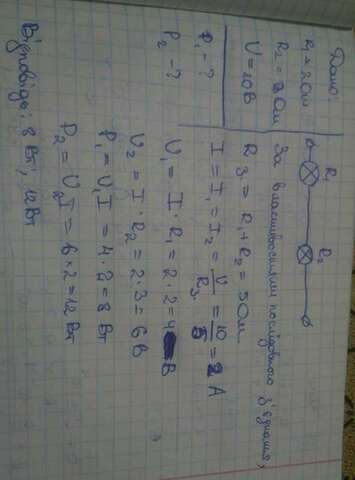 Дано:
R₁ = 2 Ом
R₂ = 3 Ом
U = 10 В
P₁ - ?
P₂ - ?
R₁ R₂
За властивостями послідовного з'єднання,
R з = R₁ + R₂ = 5 Ом.
I = I₁ = I₂ = U/Rз = 10/5 = 2 A
U₁ = I · R₁ = 2 · 2 = 4 В
U₂ = I · R₂ = 2 · 3 = 6 В
P₁ = U₁I = 4 · 2 = 8 Вт
P₂ = U₂I = 6 × 2 = 12 Вт
Відповідь: 8 Вт; 12 Вт